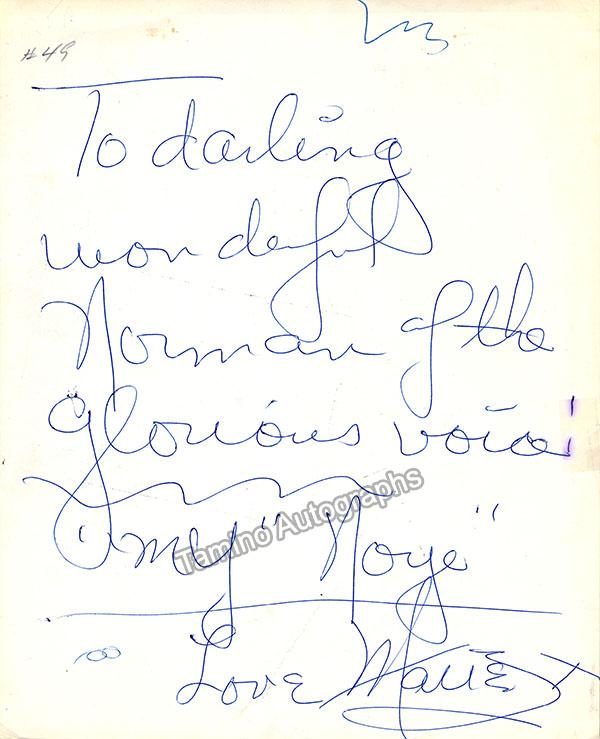 #49
To darling
wonderful
Norman of the
glorious voice!
my "Noye"
Tamino Autographs
Love